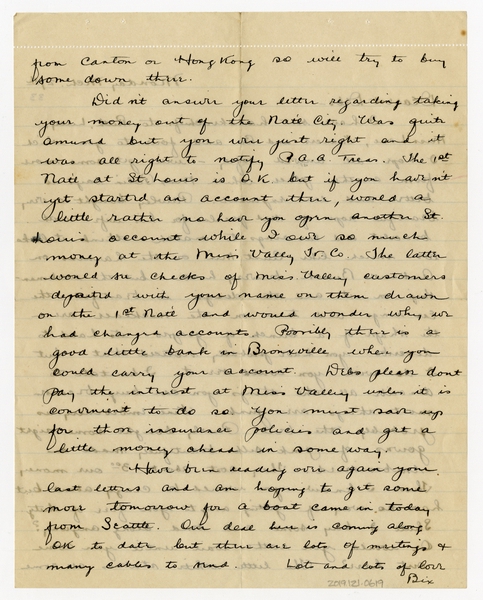 from Canton or Hong Kong so will try to buy
some down there.
Didn't answer your letter regarding taking
your money out of the Natl City. Was quite
amused but you were just right and it
was all right to notify P.A.A Treas. The 1st
Natl at St Louis is O.K but if you haven't
yet started an account there, would a
little rather no have you open another St.
Louis account while I owe so much
money at the Miss Valley Tr. Co. The latter
would see checks of Miss. Valley customers
deposited with your name on them drawn
on the 1st Natl and would wonder why we
had changed accounts. Possibly there is a
good little bank in Bronxville where you
could carry your account. Debs please dont
pay the interest at Miss Valley unless it is
convenient to do so. You must save up
for those insurance policies and get a
little money ahead in some way.
Have been reading over again your
last letters and am hoping to get some
more tomorrow for a boat came in today
from Seattle. Our deal here is coming along
OK to date but there are lots of meetings &
many cables to send. Lots and lots of love
Bix
2019.121.0619